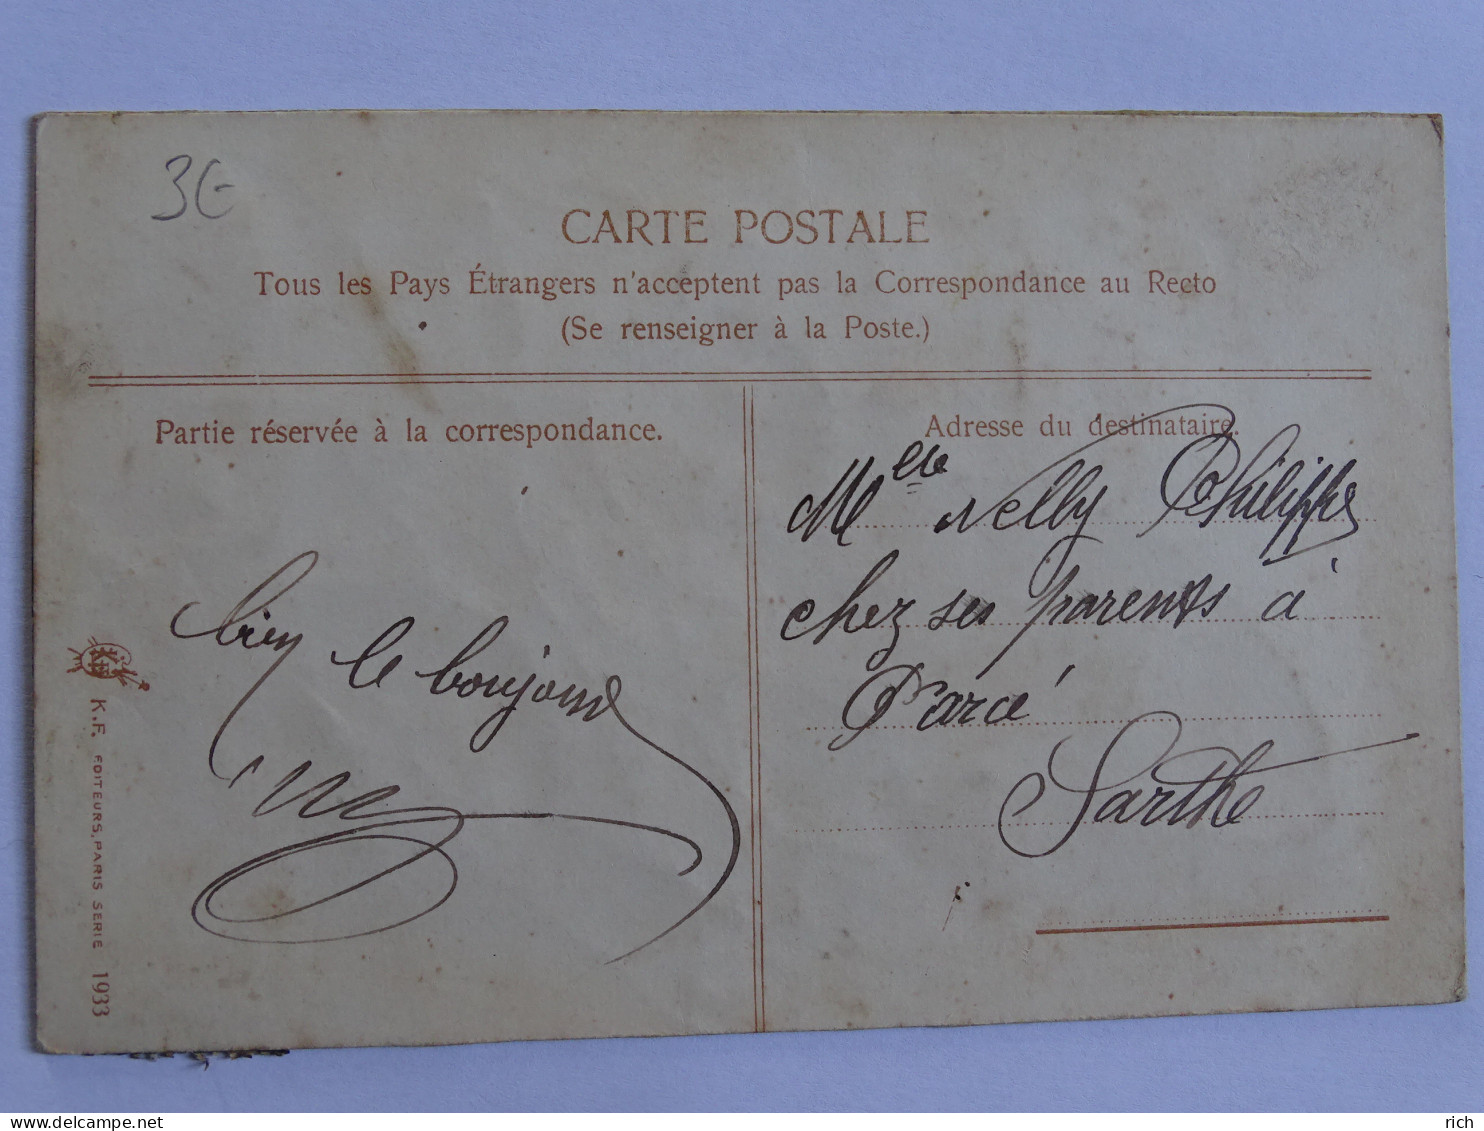 3€
CARTE POSTALE
Tous les Pays Étrangers n'acceptent pas la Correspondance au Recto
(Se renseigner à la Poste.)
Partie réservée à la correspondance.
bien le bonjour
Adresse du destinataire.
Melle Nelly Philippe
chez ses parents à
Parcé
Sarthe
K.F. EDITEURS, PARIS SERIE 1933
delcampe.net
rich